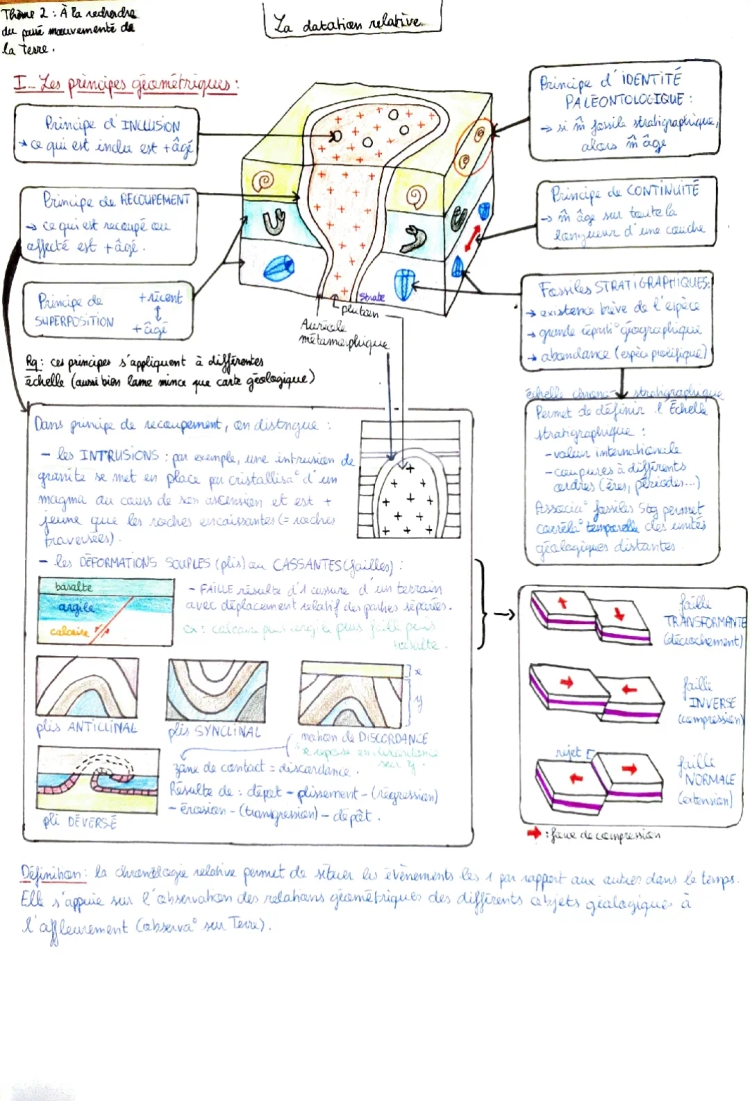 Thème 2 : À la recherche
du passé mouvementé de
la Terre.
La datation relative
I_ Les principes géométriques :
Principe d'INCLUSION
→ ce qui est inclu est + âgé
Principe de RECOUPEMENT
→ ce qui est recoupé ou
affecté est + âgé.
Principe de
SUPERPOSITION
+ récent
+ âgé
Rq : ces principes s'appliquent à différentes
échelle (aussi bien lame mince que carte géologique)
Strate
pluton
Auréole
métamorphique
Principe d'IDENTITÉ
PALÉONTOLOGIQUE :
→ si m̂ fossile stratigraphique,
alors m̂ âge
Principe de CONTINUITÉ
→ m̂ âge sur toute la
longueur d'une couche
Fossiles STRATIGRAPHIQUES:
→ existence brève de l'espèce
→ grande réparti° géographique
→ abondance (espèce prolifique)
échelle chrono-stratigraphique
Permet de définir l'Échelle
stratigraphique :
- valeur internationale
- coupures à différents
ordres (ères, périodes...)
Associa° fossiles Stg permet
corréla° temporelle des unités
géologiques distantes
Dans principe de recoupement, on distingue :
- les INTRUSIONS : par exemple, une intrusion de
granite se met en place par cristallisa° d'un
magma au cours de son ascension et est +
jeune que les roches encaissantes (= roches
traversées).
- les DÉFORMATIONS SOUPLES (plis) ou CASSANTES (failles) :
basalte
argile
calcaire
- FAILLE résulte d'1 cassure d'un terrain
avec déplacement relatif des parties séparées.
ex : calcaire puis argile puis faille puis
basalte.
plis ANTICLINAL
plis SYNCLINAL
x
y
notion de DISCORDANCE
x repose en discordance
sur y.
pli DÉVERSÉ
zone de contact = discordance.
Résulte de : dépôt - plissement - (régression)
- érosion - (transgression) - dépôt.
faille
TRANSFORMANTE
(décrochement)
faille
INVERSE
(compression)
rejet
faille
NORMALE
(extension)
→ : force de compression
Définition : la chronologie relative permet de situer les évènements les 1 par rapport aux autres dans le temps.
Elle s'appuie sur l'observation des relations géométriques des différents objets géologiques à
l'affleurement (observa° sur Terre).